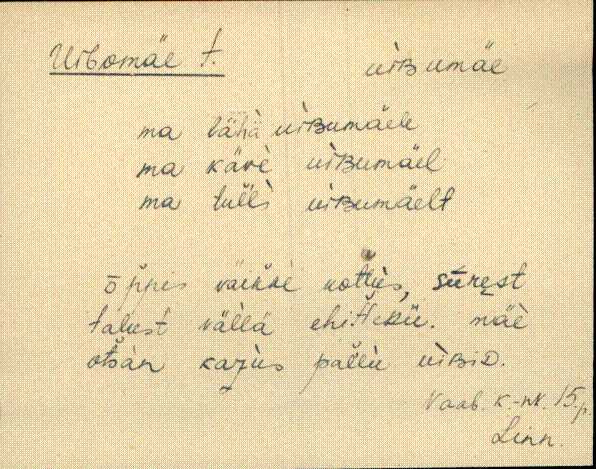 Uibomäe t. uiʙumäe
ma lähä uiʙumäele
ma käve uiʙumäel
ma tulli uiʙumäelt
väikke kottus, sūrest
talust vällä ehittekü. mäe
otsan kazus pallu uiʙiᴅ.
Vaab. k.-nk. 15.p.
Linn.